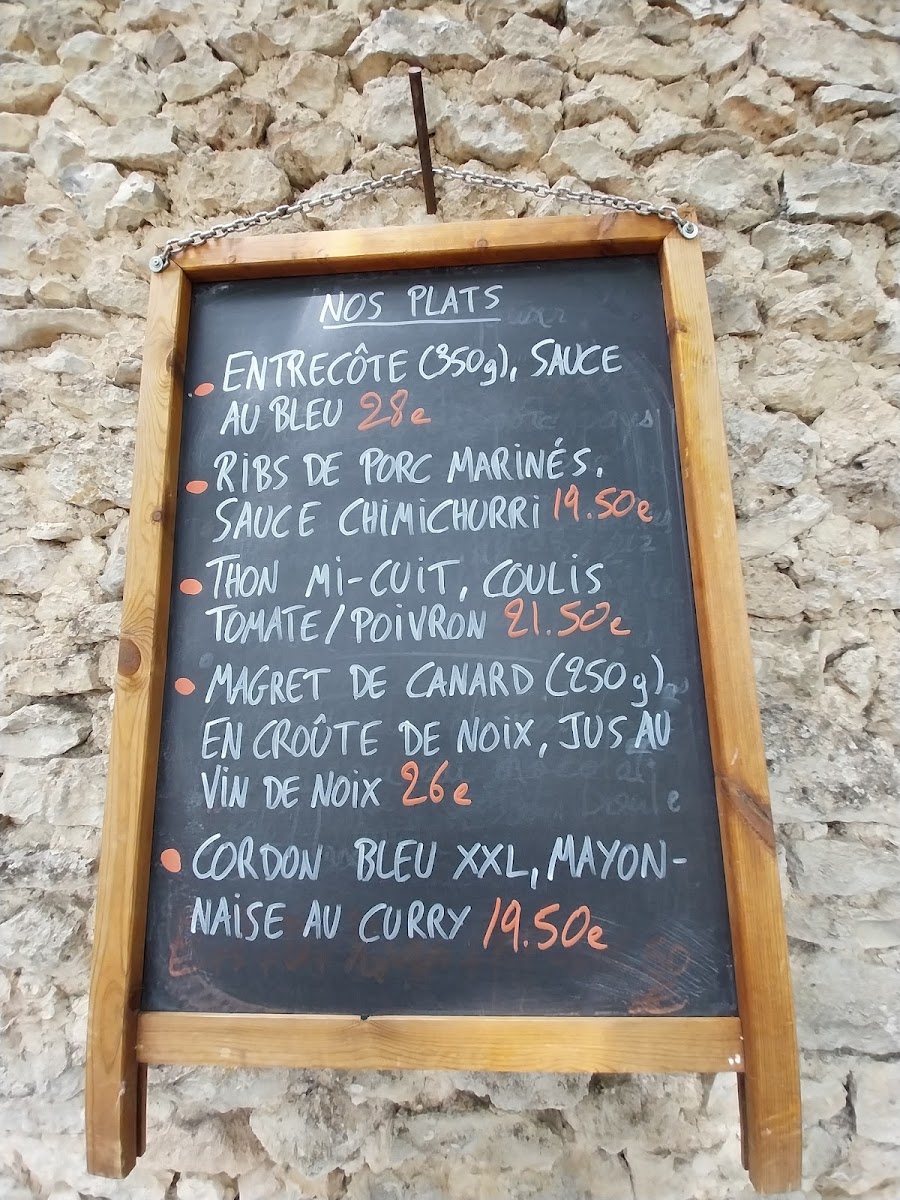 NOS PLATS
ENTRECÔTE (350g), SAUCE
AU BLEU 28e
RIBS DE PORC MARINÉS,
SAUCE CHIMICHURRI 19.50e
THON MI-CUIT, COULIS
TOMATE/POIVRON 21.50e
MAGRET DE CANARD (250g)
EN CROÛTE DE NOIX, JUS AU
VIN DE NOIX 26e
CORDON BLEU XXL, MAYON-
NAISE AU CURRY 19.50e